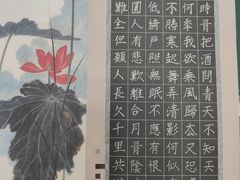 時有把酒問青天不知天
何年我欲乘風歸去又恐
不勝寒起舞弄清影何似
低綺戶照無眠不應有恨
圓人有悲歡離合月有陰
難全但願人長久千里共